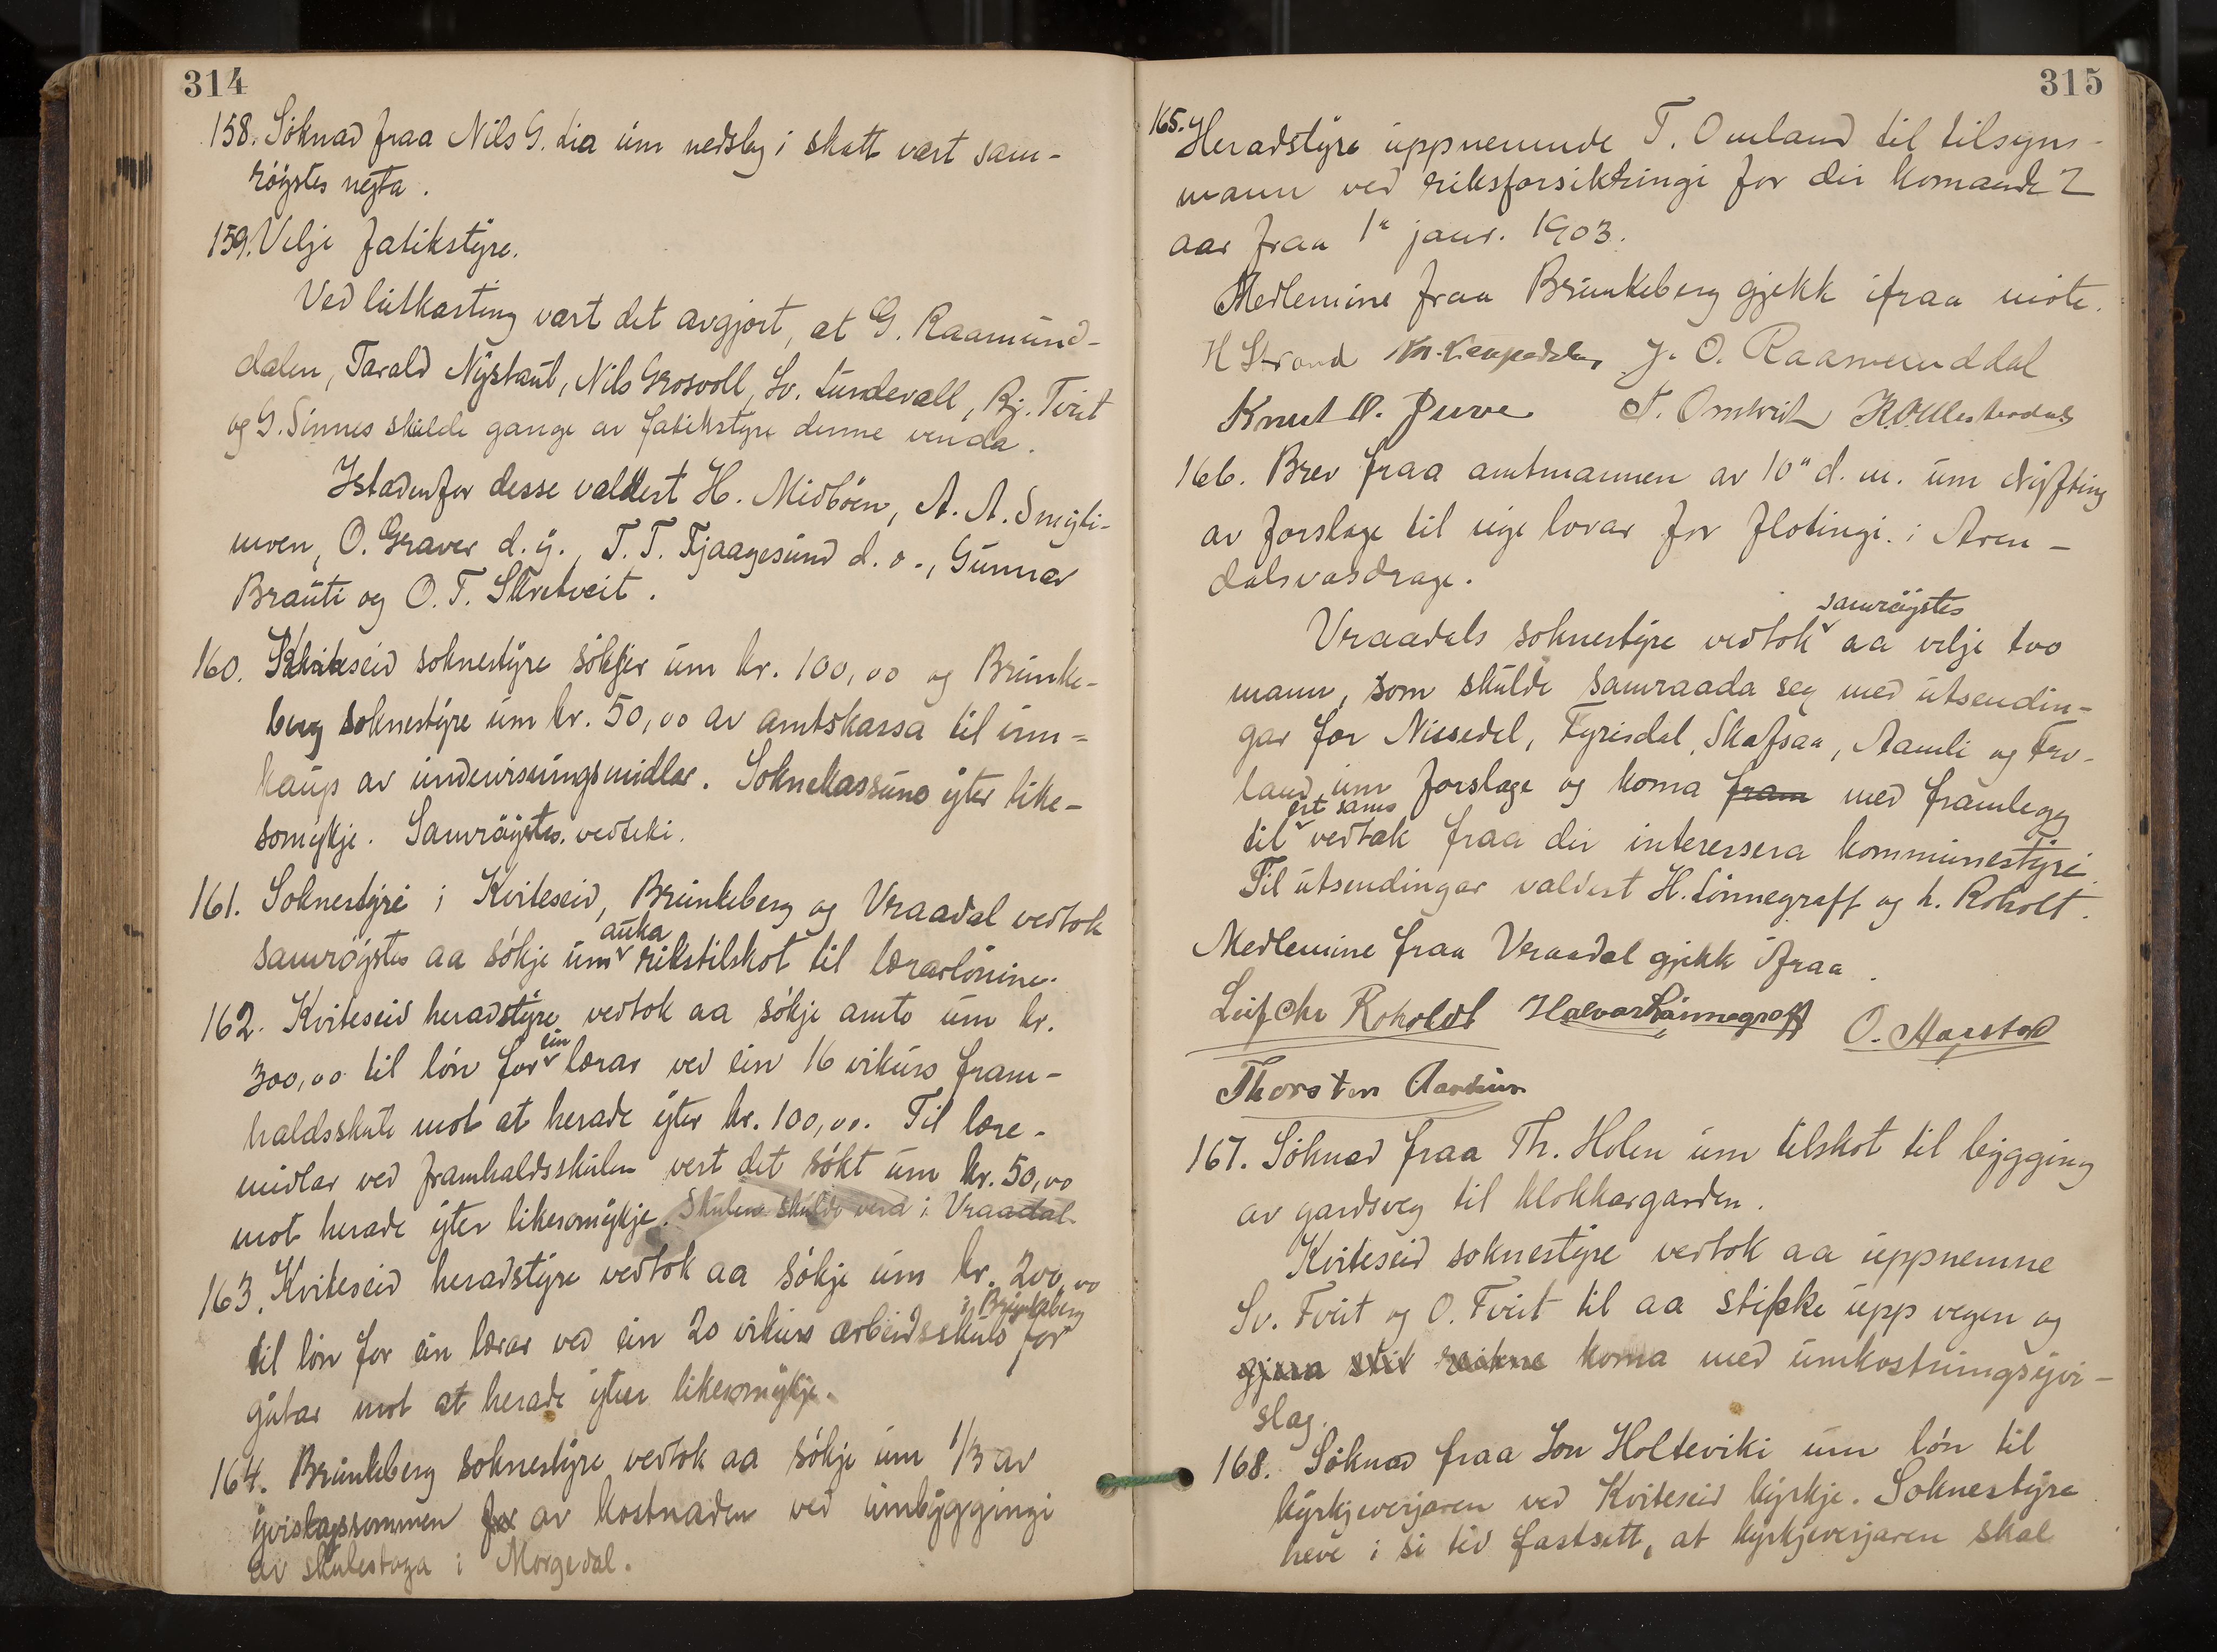 314
158. Söknad fraa Nils G. Lia um nedslag i skatt vart sam-
röystes negta.
159. Velje fatikstyre.
Ved lutkasting vart det avgjort, at G. Raamund-
dalen, Tarald Nystaul, Nils Grosvoll, Sv. Lundevall, Bj. Tveit
og G. Sinnes skulde gange av fatikstyre denne venda.
Istadenfor desse valdest H. Midböen, A. A. Smyli-
moen, O. Graver d. y., T. T. Fjaagesund d. o., Gunnar
Brauti og O. T. Skretveit.
160. Kviteseid soknestyre sökjer um kr. 100,00 og Brunke-
berg soknestyre um kr. 50,00 av amtskassa til inn-
kaup av undervisningsmidlar. Soknekassune yter like-
somykje. Samröystes vedteki.
161. Soknestyri i Kviteseid, Brunkeberg og Vraadal vedtok
samröystes aa sökje um auka rikstilskot til lærarlönine.
162. Kviteseid heradstyre vedtok aa sökje amte um kr.
300,00 til lön for ein lærar ved ein 16 vikurs fram-
haldsskule mot at herade yter kr. 100,00. Til lære-
midlar ved framhaldsskulen vert det sökt um kr. 50,00
mot herade yter likesomykje. Skulen skulde vera i Vraadal.
163. Kviteseid heradstyre vedtok aa sökje um kr. 200,00
til lön for ein lærar ved ein 20 vikurs arbeidsskule i Brunkeberg for
gutar mot at herade yter likesomykje.
164. Brunkeberg soknestyre vedtok aa sökje um 1/3 av
yvislagssummen for av kostnaden ved umbyggingi
av skulestoga i Morgedal.
315
165. Heradstyre uppnemnde T. Omland til tilsyns-
mann ved riksforsikringi for dei komande 2
aar fraa 1" janr. 1903.
Medlemine fraa Brunkeberg gjekk ifraa möte.
H Strand J. O. Raamunddal
Knut O. T. Omtveit
166. Brev fraa amtmannen av 10" d. m. um dryfting
av forslage til nye lovar for flotingi i Aren-
dalsvasdrage.
Vraadals soknestyre vedtok samröystes aa velje tvo
mann, som skulde samraada seg med utsendin-
gar for Nissedal, Fyrisdal, Skafsaa, Aamli og Fro-
land um forslage og koma fram med framlegg
til eit sams vedtak fraa dei interessera kommunestyri.
Til utsendingar valdest H. Lönnegraff og L. Roholt.
Medlemine fraa Vraadal gjekk ifraa.
Leif Chr Roholdt Halvor Lönnegraff O. Harstad
Thorsten
167. Söknad fraa Th. Holen um tilskot til bygging
av gardsveg til klokkargarden.
Kviteseid soknestyre vedtok aa uppnemne
Sv. Tveit og O. Tveit til aa stikke upp vegen og
gjera koma med umkostningsyvi-
slag.
168. Söknad fraa Jon Holteviki um lön til
kyrkjeverjaren ved Kviteseid kyrkje. Soknestyre
heve i si tid fastsett, at kyrkjeverjaren skal